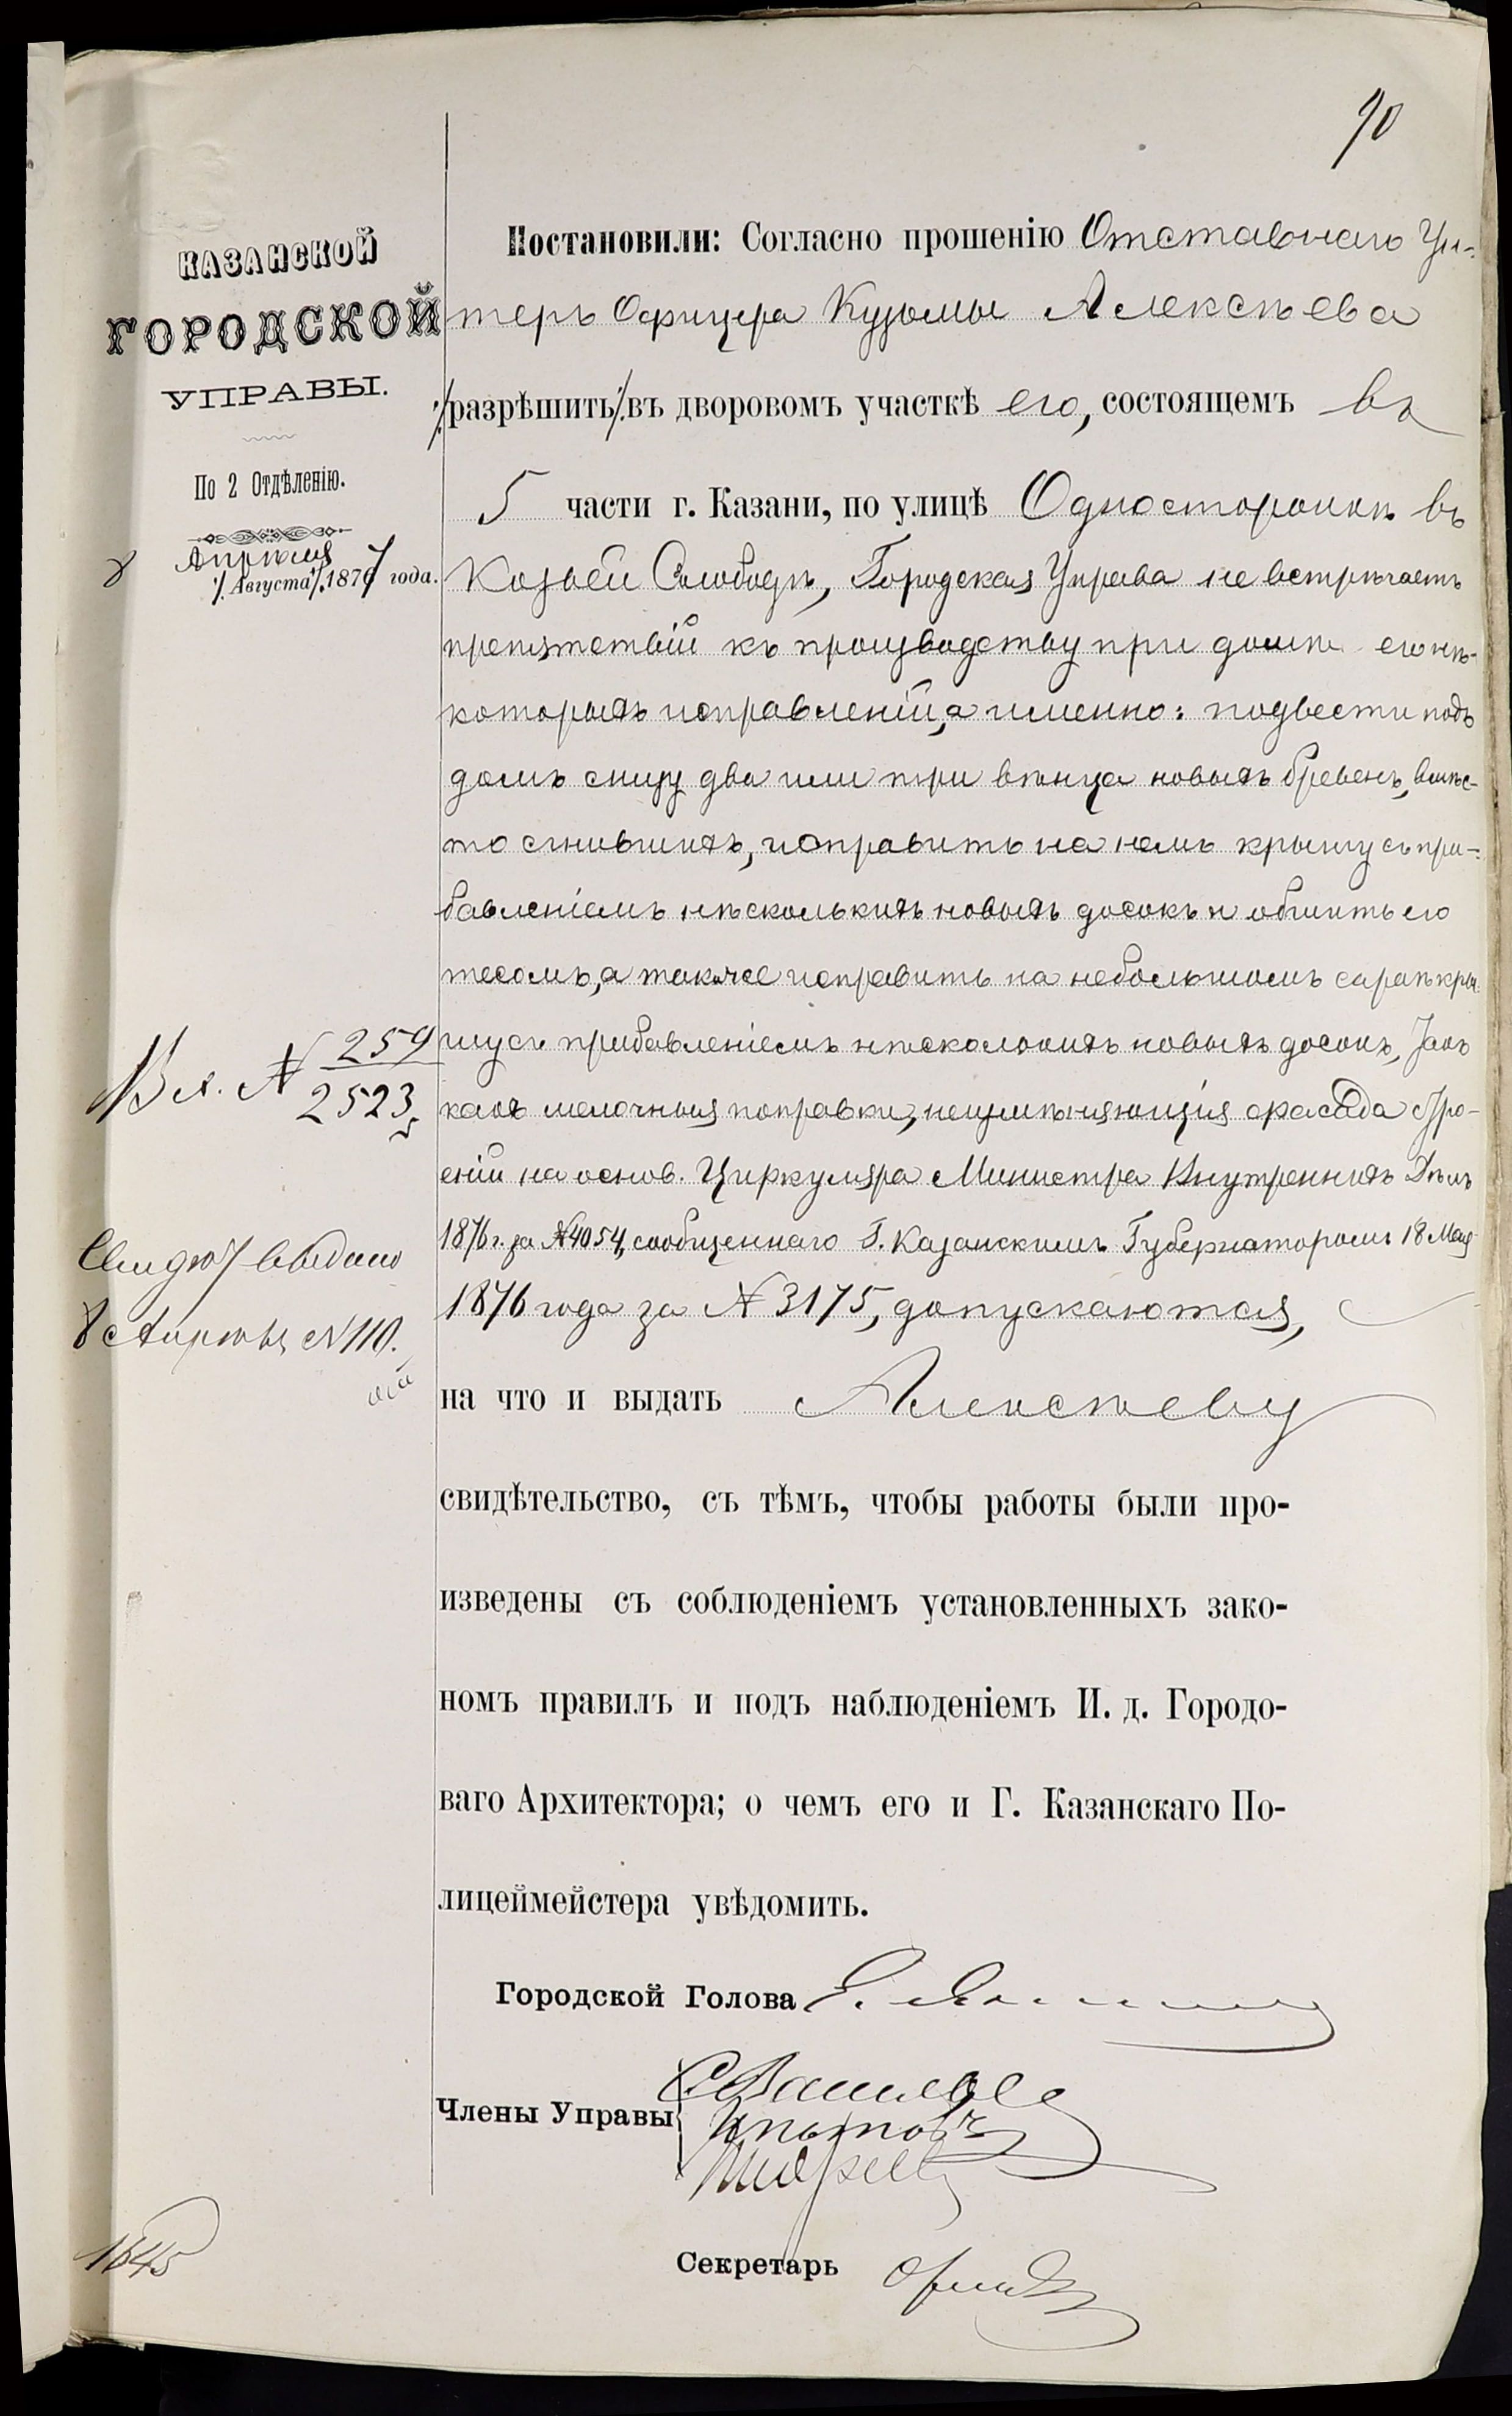 90
КАЗАНСКОЙ
ГОРОДСКОЙ
УПРАВЫ.
По 2 Отдѣленію.
8 Апрѣля
/Августа/ 1877 года.
Вх. № 259
2523
выдано
8 Апрѣля № 110.
1645
Постановили: Согласно прошенію Отставнаго Ун-
теръ Офицера Кузьмы Алексѣева
/разрѣшить/ въ дворовомъ участкѣ его, состоящемъ въ
5 части г. Казани, по улицѣ Односторонкѣ въ
Козьей Слободѣ, Городская Управа не встрѣчаетъ
препятствій къ производству при домѣ его нѣ-
которыхъ исправленій, а именно: подвести подъ
домъ снизу два или три вѣнца новыхъ бревенъ, вмѣс-
то сгнившихъ, исправить на немъ крышу съ при-
бавленіемъ нѣсколькихъ новыхъ досокъ и обшить его
тесомъ, а также исправить на небольшомъ сараѣ кры-
шу съ прибавленіемъ нѣсколькихъ новыхъ досокъ, такъ
какъ мелочныя поправки, неизмѣняющія фасада стро-
еній на основ. Циркуляра Министра Внутреннихъ Дѣлъ
1876 г. за № 4054, сообщеннаго Г. Казанскимъ Губернаторомъ 18 Мая
1876 года за № 3175, допускаются,
на что и выдать Алексѣеву
свидѣтельство, съ тѣмъ, чтобы работы были про-
изведены съ соблюденіемъ установленныхъ зако-
номъ правилъ и подъ наблюденіемъ И. д. Городо-
ваго Архитектора; о чемъ его и Г. Казанскаго По-
лицеймейстера увѣдомить.
Городской Голова
Члены Управы
Секретарь